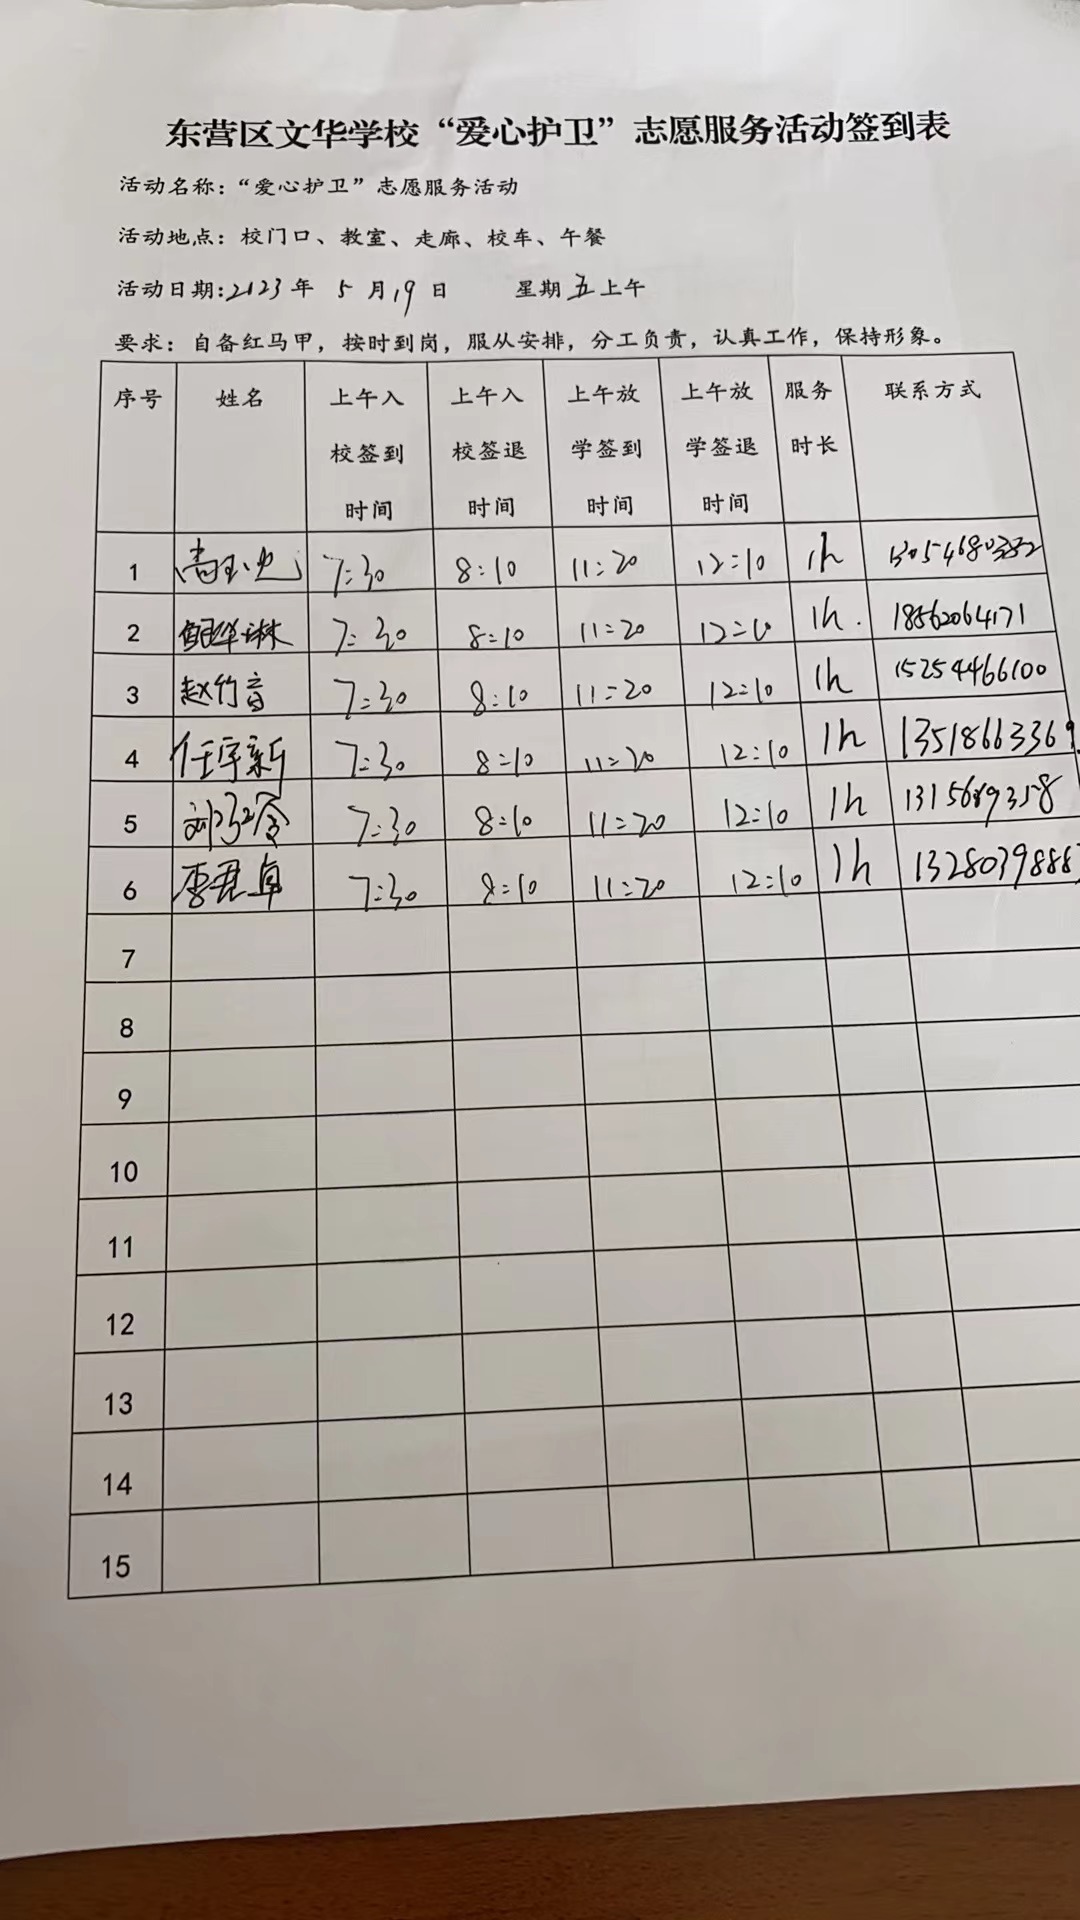 东营区文华学校“爱心护卫”志愿服务活动签到表
活动名称：“爱心护卫”志愿服务活动
活动地点：校门口、教室、走廊、校车、午餐
活动日期:2023年 5月19日 星期五上午
要求：自备红马甲，按时到岗，服从安排，分工负责，认真工作，保持形象。
序号 姓名 上午入校签到时间 上午入校签退时间 上午放学签到时间 上午放学签退时间 服务时长 联系方式
1 7:30 8:10 11:20 12:10 1h
2 7:30 8:10 11:20 12:10 1h. 18562064171
3 赵竹音 7:30 8:10 11:20 12:10 1h 15254466100
4 任宇新 7:30 8:10 11:20 12:10 1h 13518663369
5 7:30 8:10 11:20 12:10 1h
6 李君卓 7:30 8:10 11:20 12:10 1h
7
8
9
10
11
12
13
14
15